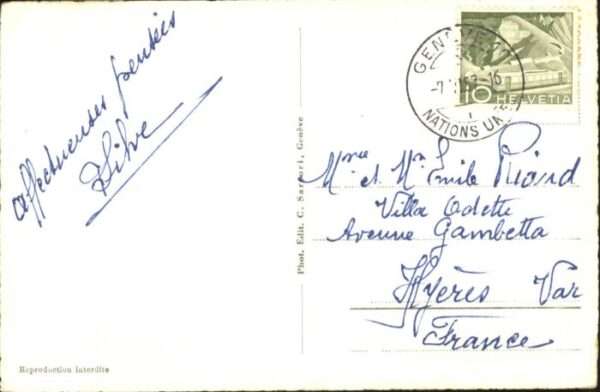 affectueuses pensées
Sylve
Phot. Edit. C. Sartori, Genève
Reproduction interdite
GENÈVE
-7 53-16
NATIONS UN
10 HELVETIA
Mme et Mr Emile Picard
Villa Odette
Avenue Gambetta
Hyères Var
France